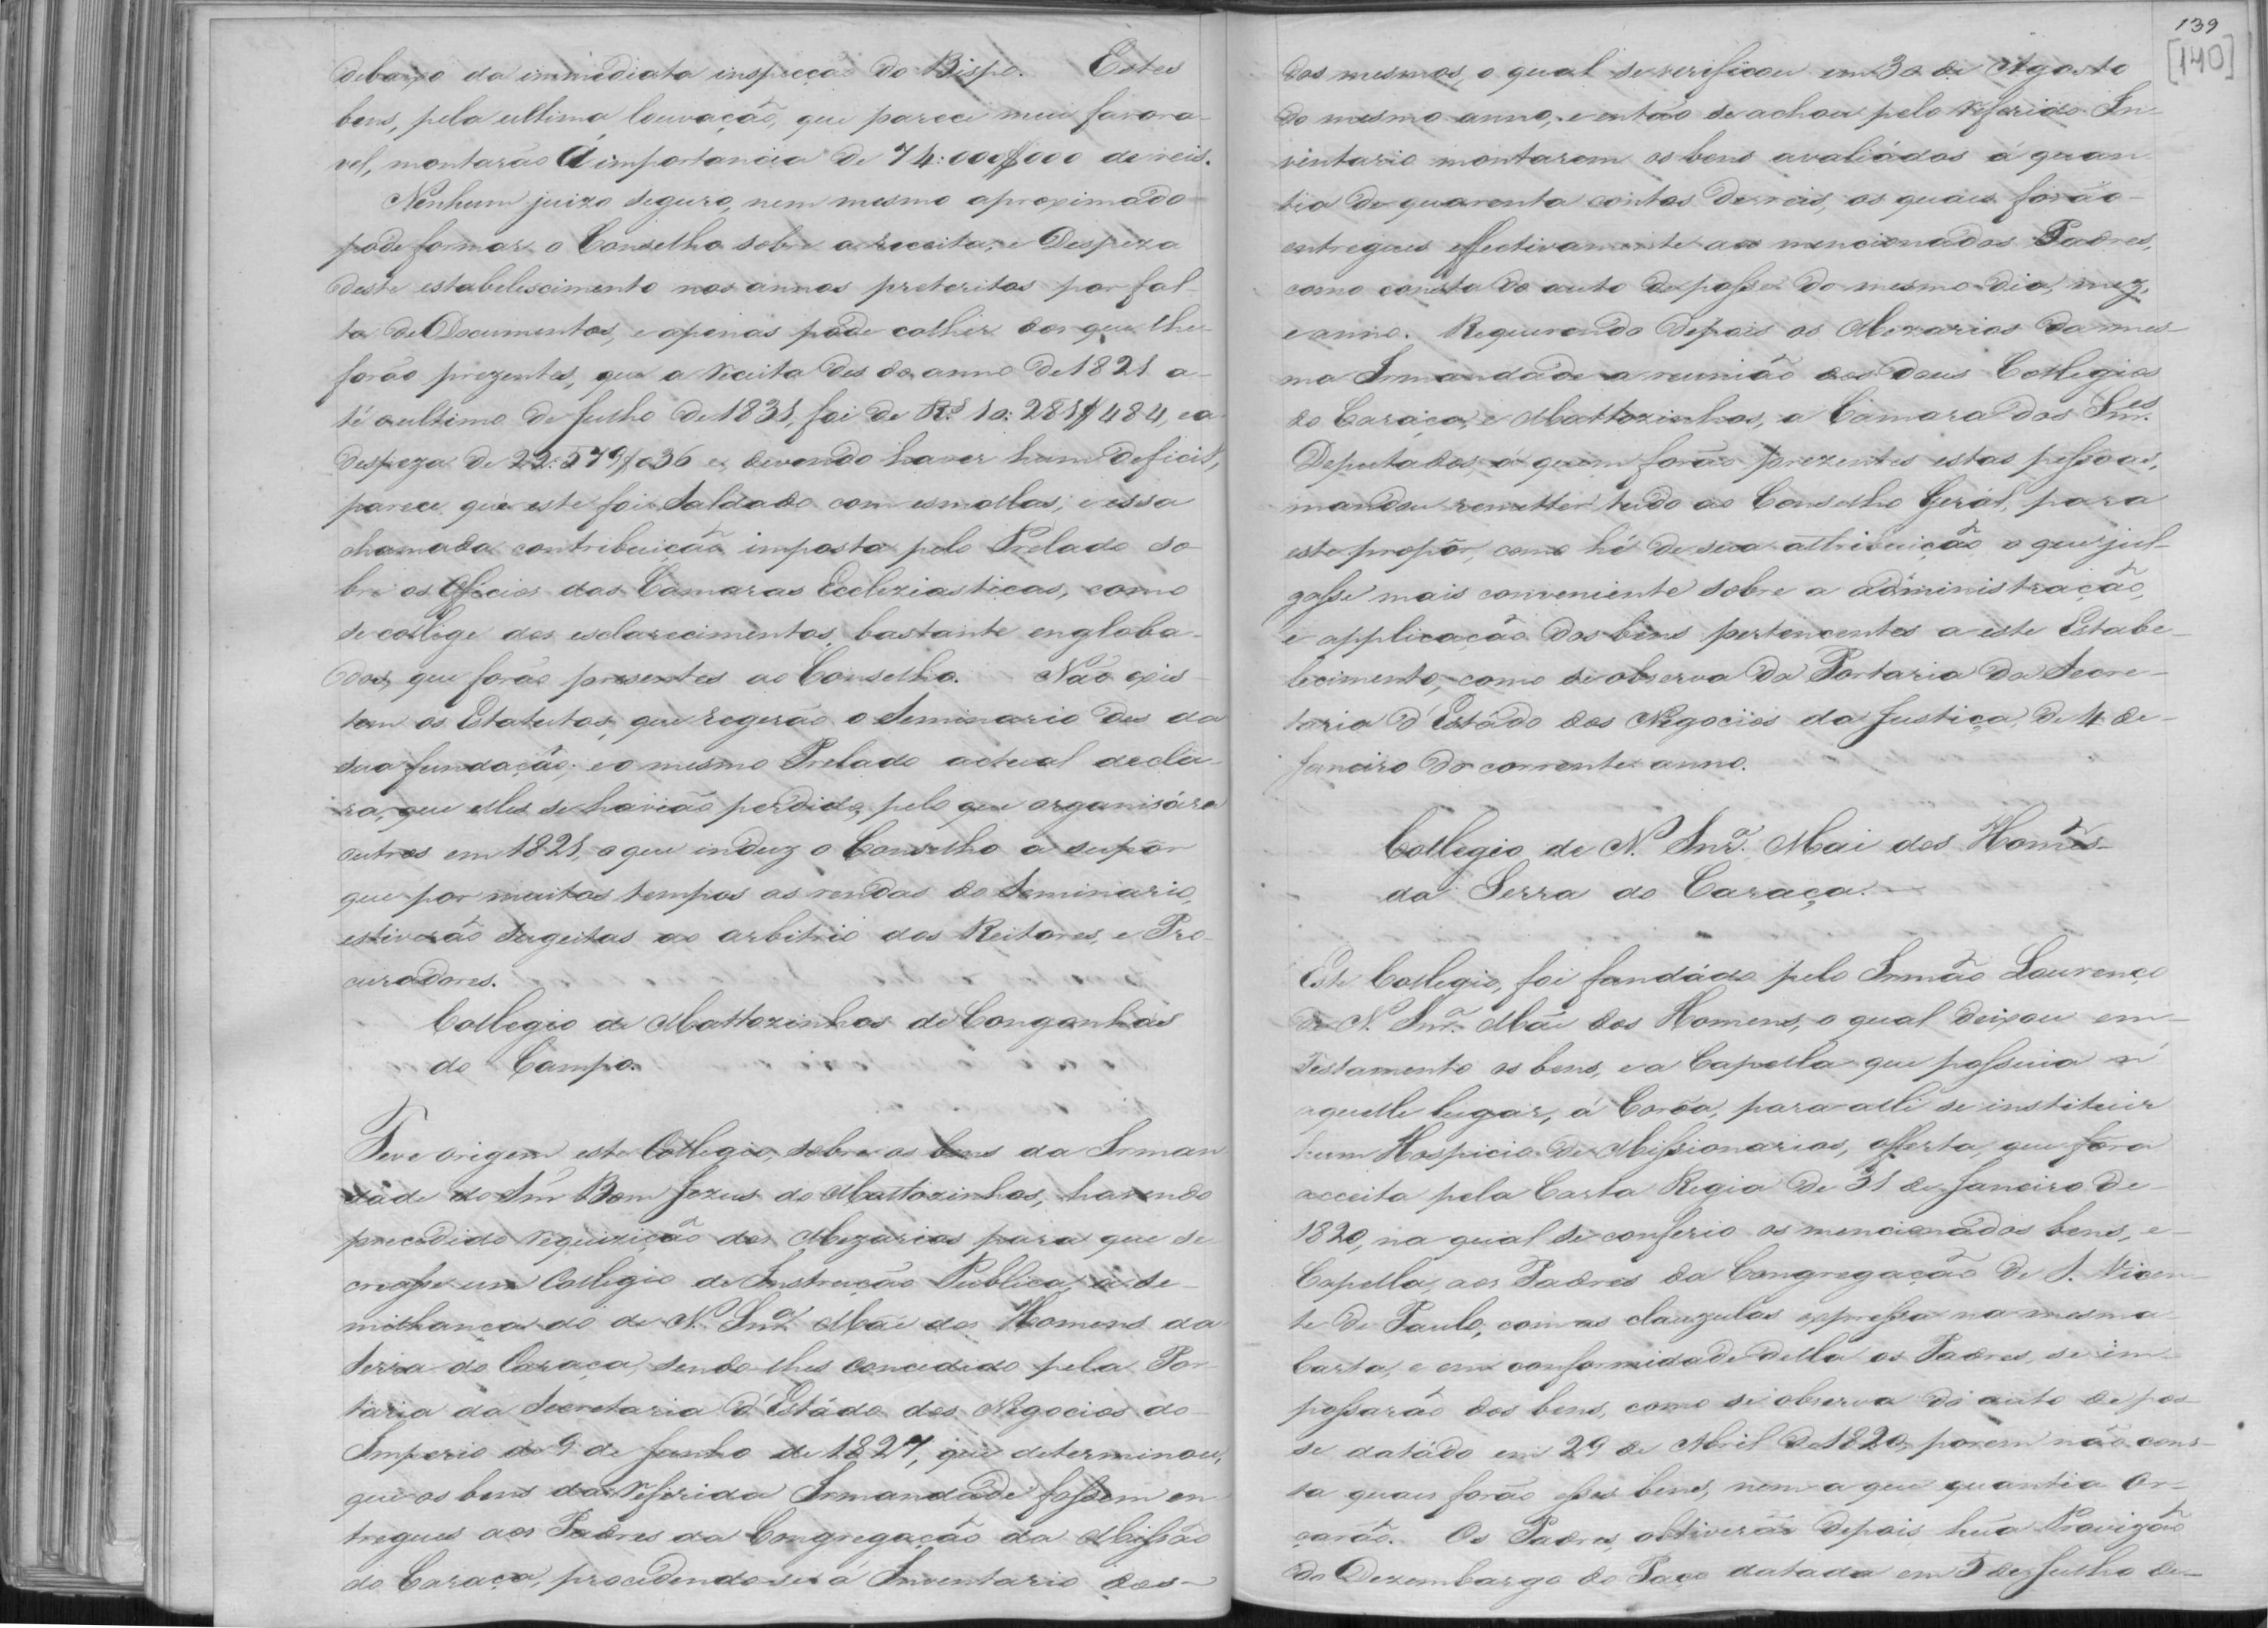 debaixo da immediata inspecção do Bispo. Estes
bens, pela ultima louvação, que parece mui favora-
vel, montarão á importancia de 74:000$000 de reis.
Nenhum juizo seguro, nem mesmo aproximado
pode formar o Conselho sobre a receita, e Despeza
deste estabelescimento nos annos preteritos por fal-
ta de Documentos, e apenas pode colhier dos que lhe
forão prezentes, que a receita des do anno de 1821 a-
té o ultimo de Julho de 1831, foi de Rs 10:281$484, e a
despeza de 22:579$036 e devendo haver hum deficit,
parece que este foi saldado com esmollas, e essa
chamada contribuicão imposta pelo Prelado so-
bre os Officios das Camaras Eccleziasticas, como
se collige dos esclarecimentos bastante engloba-
dos, que forão presentes ao Conselho. Não exis-
tem os Estatutos, que regerão o Seminario des da
sua fundação; e o mesmo Prelado actual decla-
ra, que elles se havião perdido, pelo que organisára
outros em 1821, o que induz o Conselho a supôr
que por muitos tempos as rendas do Seminario,
estiverão sugeitas ao arbitrio dos Reitores, e Pro-
curadores.
Collegio de Mattozinhos de Congonhas
do Campo.
Teve origem este Collegio, sobre os bens da Irman-
dade do Snr Bom Jezus de Mattozinhos, havendo
precedido requizição dos Mezarios para que se
creasse um Collegio de Instrucção Publica, a se-
milhança do de N. Snra Mãe dos Homens da
Serra do Caraça, sendo lhes concedido pela Por-
taria da Secretaria d'Estádo dos Negocios do
Imperio de 9 de Junho de 1827, que determinou,
que os bens da referida Irmandade fossem en-
tregues aos Padres da Congregação da Missão
do Caraça, procedendo se a Inventario dos-
139
[140]
dos mesmos, o qual se verificou em 30 de Agosto
do mesmo anno, e então se achou pelo referido In-
ventario montarem os bens avaliádos á quan-
tia de quarenta contos de reis, os quaes forão-
entregues effectivamente aos mencionados Padres,
como consta do auto de posse do mesmo dia, mez,
e anno. Requerendo depois os Mezarios da mes-
ma Irmandade a reunião dos dous Collegios
do Caraça, e Mattozinhos, a Camara dos Snres
Deputados, á quem forão prezentes estas pessoas,
mandou remetter tudo ao Conselho Gerál, para
este propôr, como hé de sua attribuição o que jul-
gasse mais conveniente sobre a administração,
e applicação dos bens pertencentes a este Estabe-
lecimento, como se observa da Portaria da Secre-
taria d'Estádo dos Negocios da Justiça, de 4 de-
Janeiro do corrente anno.
Collegio de N. Snra. Mai dos Homẽs-
da Serra do Caraça.
Este Collegio, foi fundádo pelo Irmão Lourenço
de N. Snra. Mãi dos Homens, o qual deixou em-
Testamento os bens, e a Capella que possuia n'
aquelle lugar, á Corôa, para alli se instituir
hum Hospicio de Missionarios, offerta, que fôra
acceita pela Carta Regia de 31 de Janeiro de-
1820, na qual se conferio os mencionádos bens, e-
Capella, aos Padres da Congregação de S. Vicen-
te de Paulo, com as clauzulas expressa na mesma
Carta, e em conformidade della os Padres, se im-
possarão dos bens, como se observa do auto de pos-
se datádo em 29 de Abril de 1820, porem não cons-
ta quaes forão esses bens, nem a que quantia or-
çarão. Os Padres, obtiverão depois hũa Provizão
do Dezembargo do Paço datada em 5 de Julho de-